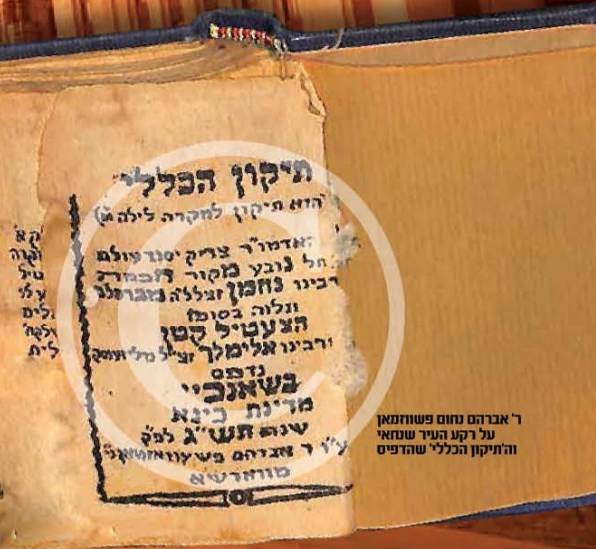 תיקון הכללי
הוא תיקון למקרה לילה
האדמו"ר צדיק יסוד עולם
נחל נובע מקור חכמה
רבינו נחמן זצללה"ה מברסלב
ונלוה בסופו
הצעטיל קטן
ורבינו אלימלך זצ"ל
נדפס
בשאנכיי
מדינת כינא
שנת תש"ג לפ"ק
ע"י ר' אברהם
מווארשא
ר' אברהם נחום פשווזמאן
על רקע העיר שנחאי
וה'תיקון הכללי' שהדפיס